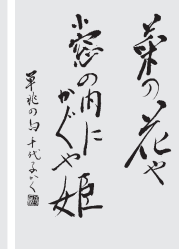 菜の花や
小窓の内に
かぐや姫
草兆の句 千代子かく